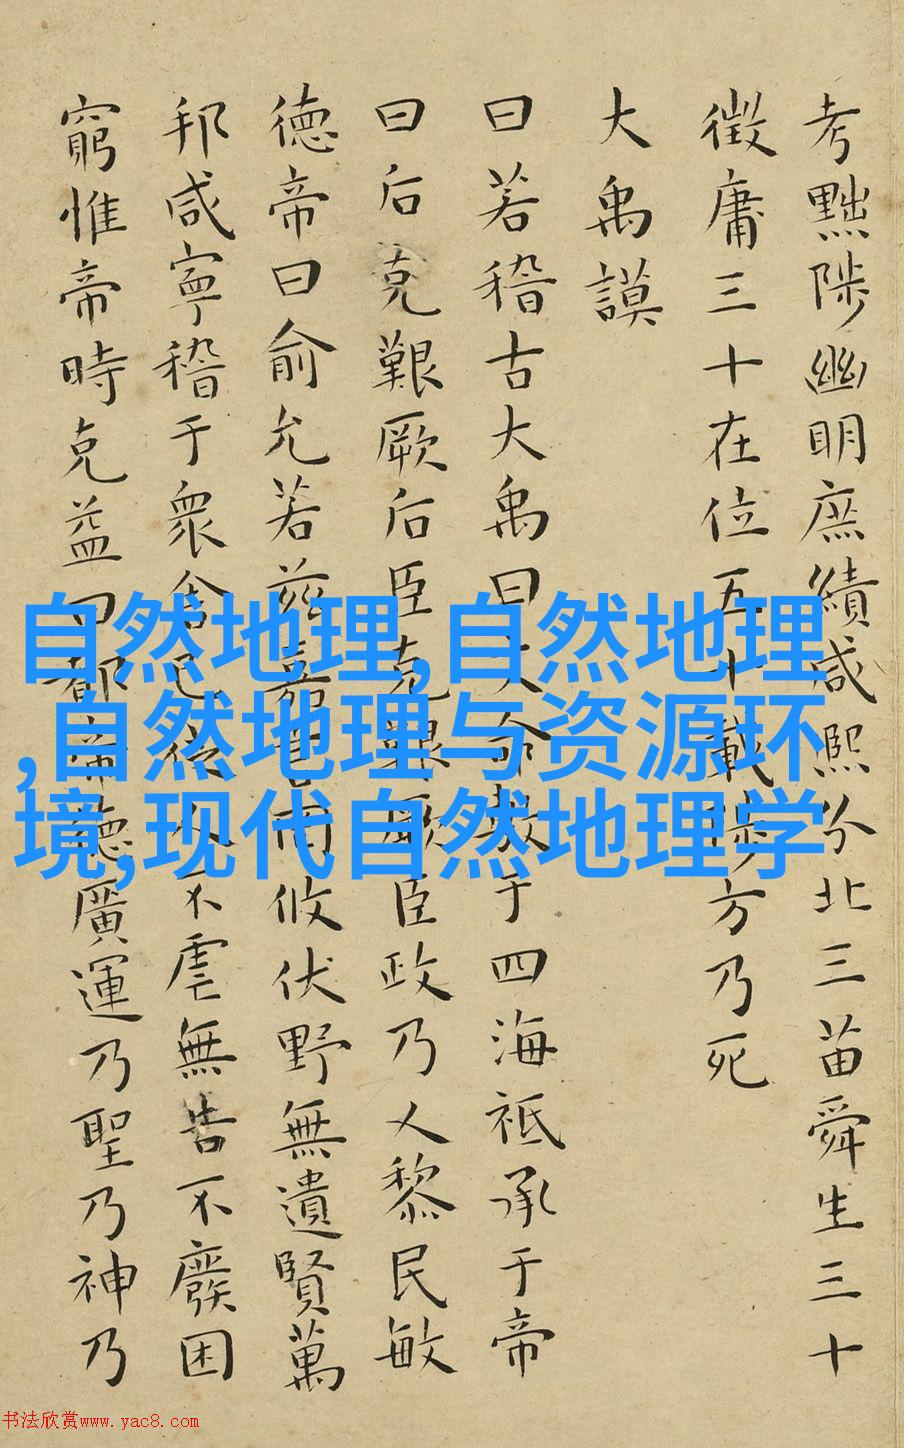 考黜陟幽明庶績咸熙分北三苗舜生三十
徵庸三十在位五十載陟方乃死
大禹謨
曰若稽古大禹曰文命敷于四海祗承于帝
曰后克艱厥后臣克艱厥臣政乃乂黎民敏
德帝曰俞允若茲嘉言罔攸伏野無遺賢萬
邦咸寧稽于衆舍己從人不虐無告不廢困
窮惟帝時克益曰都帝德廣運乃聖乃神乃
自然地理,自然地理
,自然地理与资源环
境,现代自然地理学
书法欣赏www.yac8.com